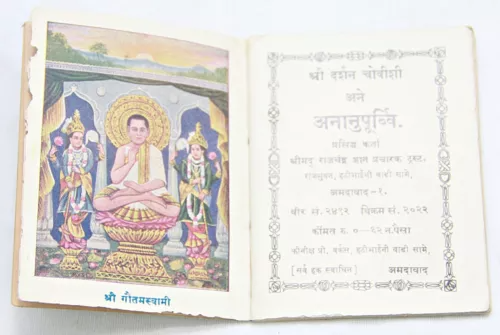 श्री गौतमस्वामी
श्री दर्शन चोवीशी
अने
अनानुपूर्व्वि.
प्रसिद्ध कर्ता
श्रीमद् राजचंद्र ज्ञान प्रचारक ट्रस्ट,
राजभुवन, हठीभाईनी वाडी सामे,
अमदावाद-१.
वीर सं. २४९२ विक्रम सं. २०२२
कींमत रु. ०-६२ न.पैसा
हठीभाईनी वाडी सामे,
[सर्व हक स्वाधिन] अमदावाद